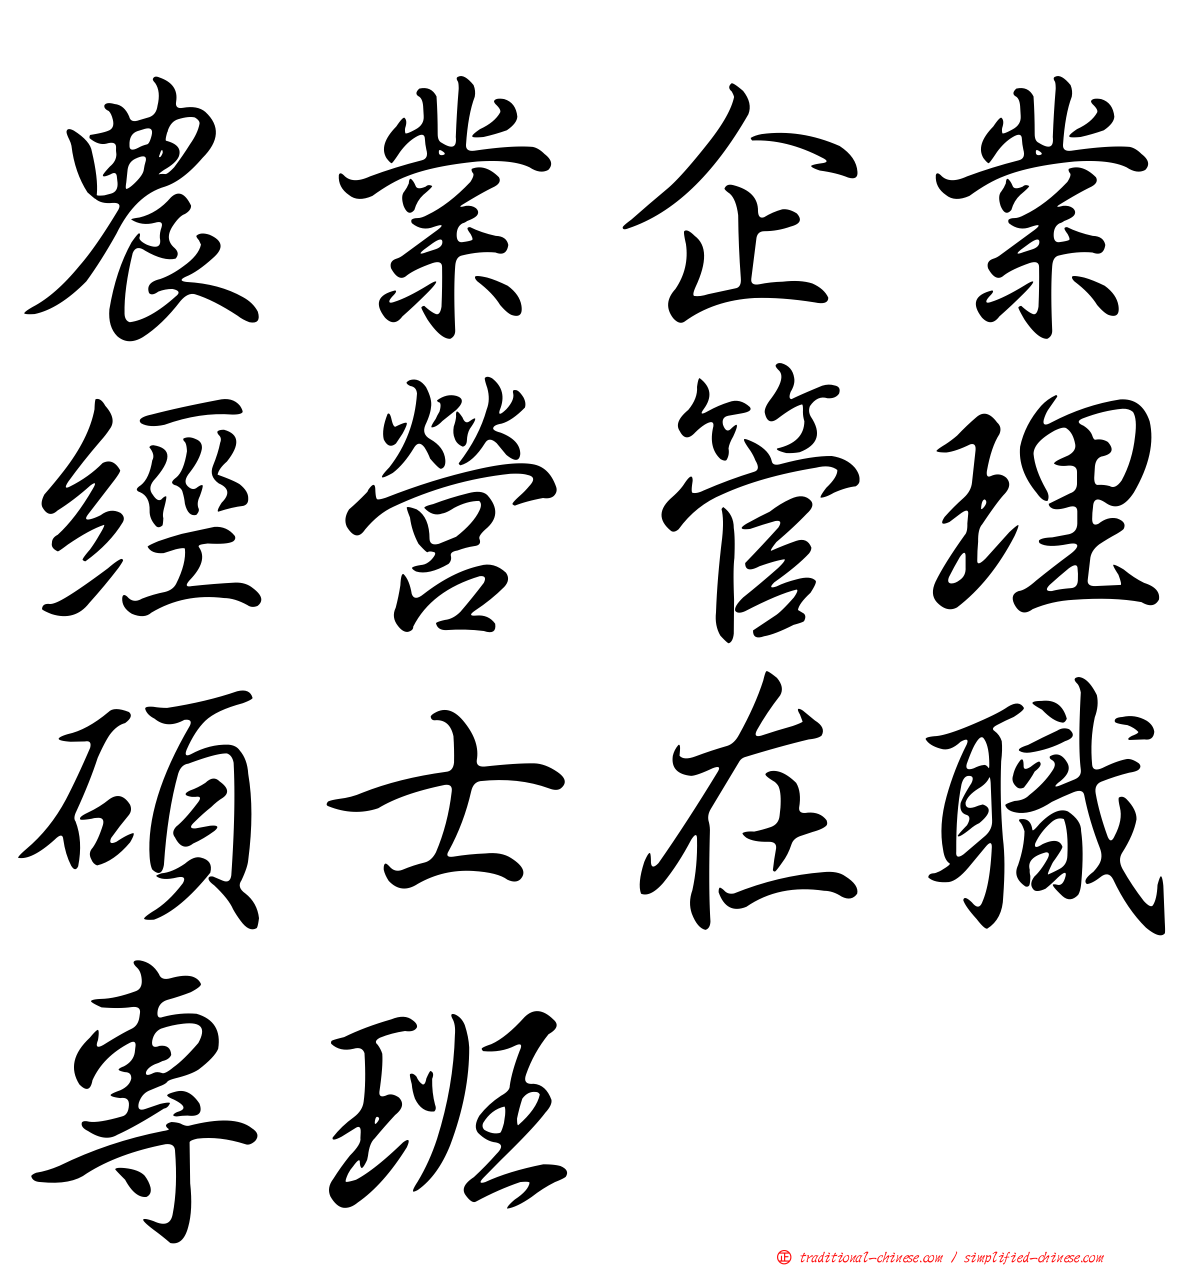 農業企業
經營管理
碩士在職
專班
正 traditional-chinese.com / simplified-chinese.com